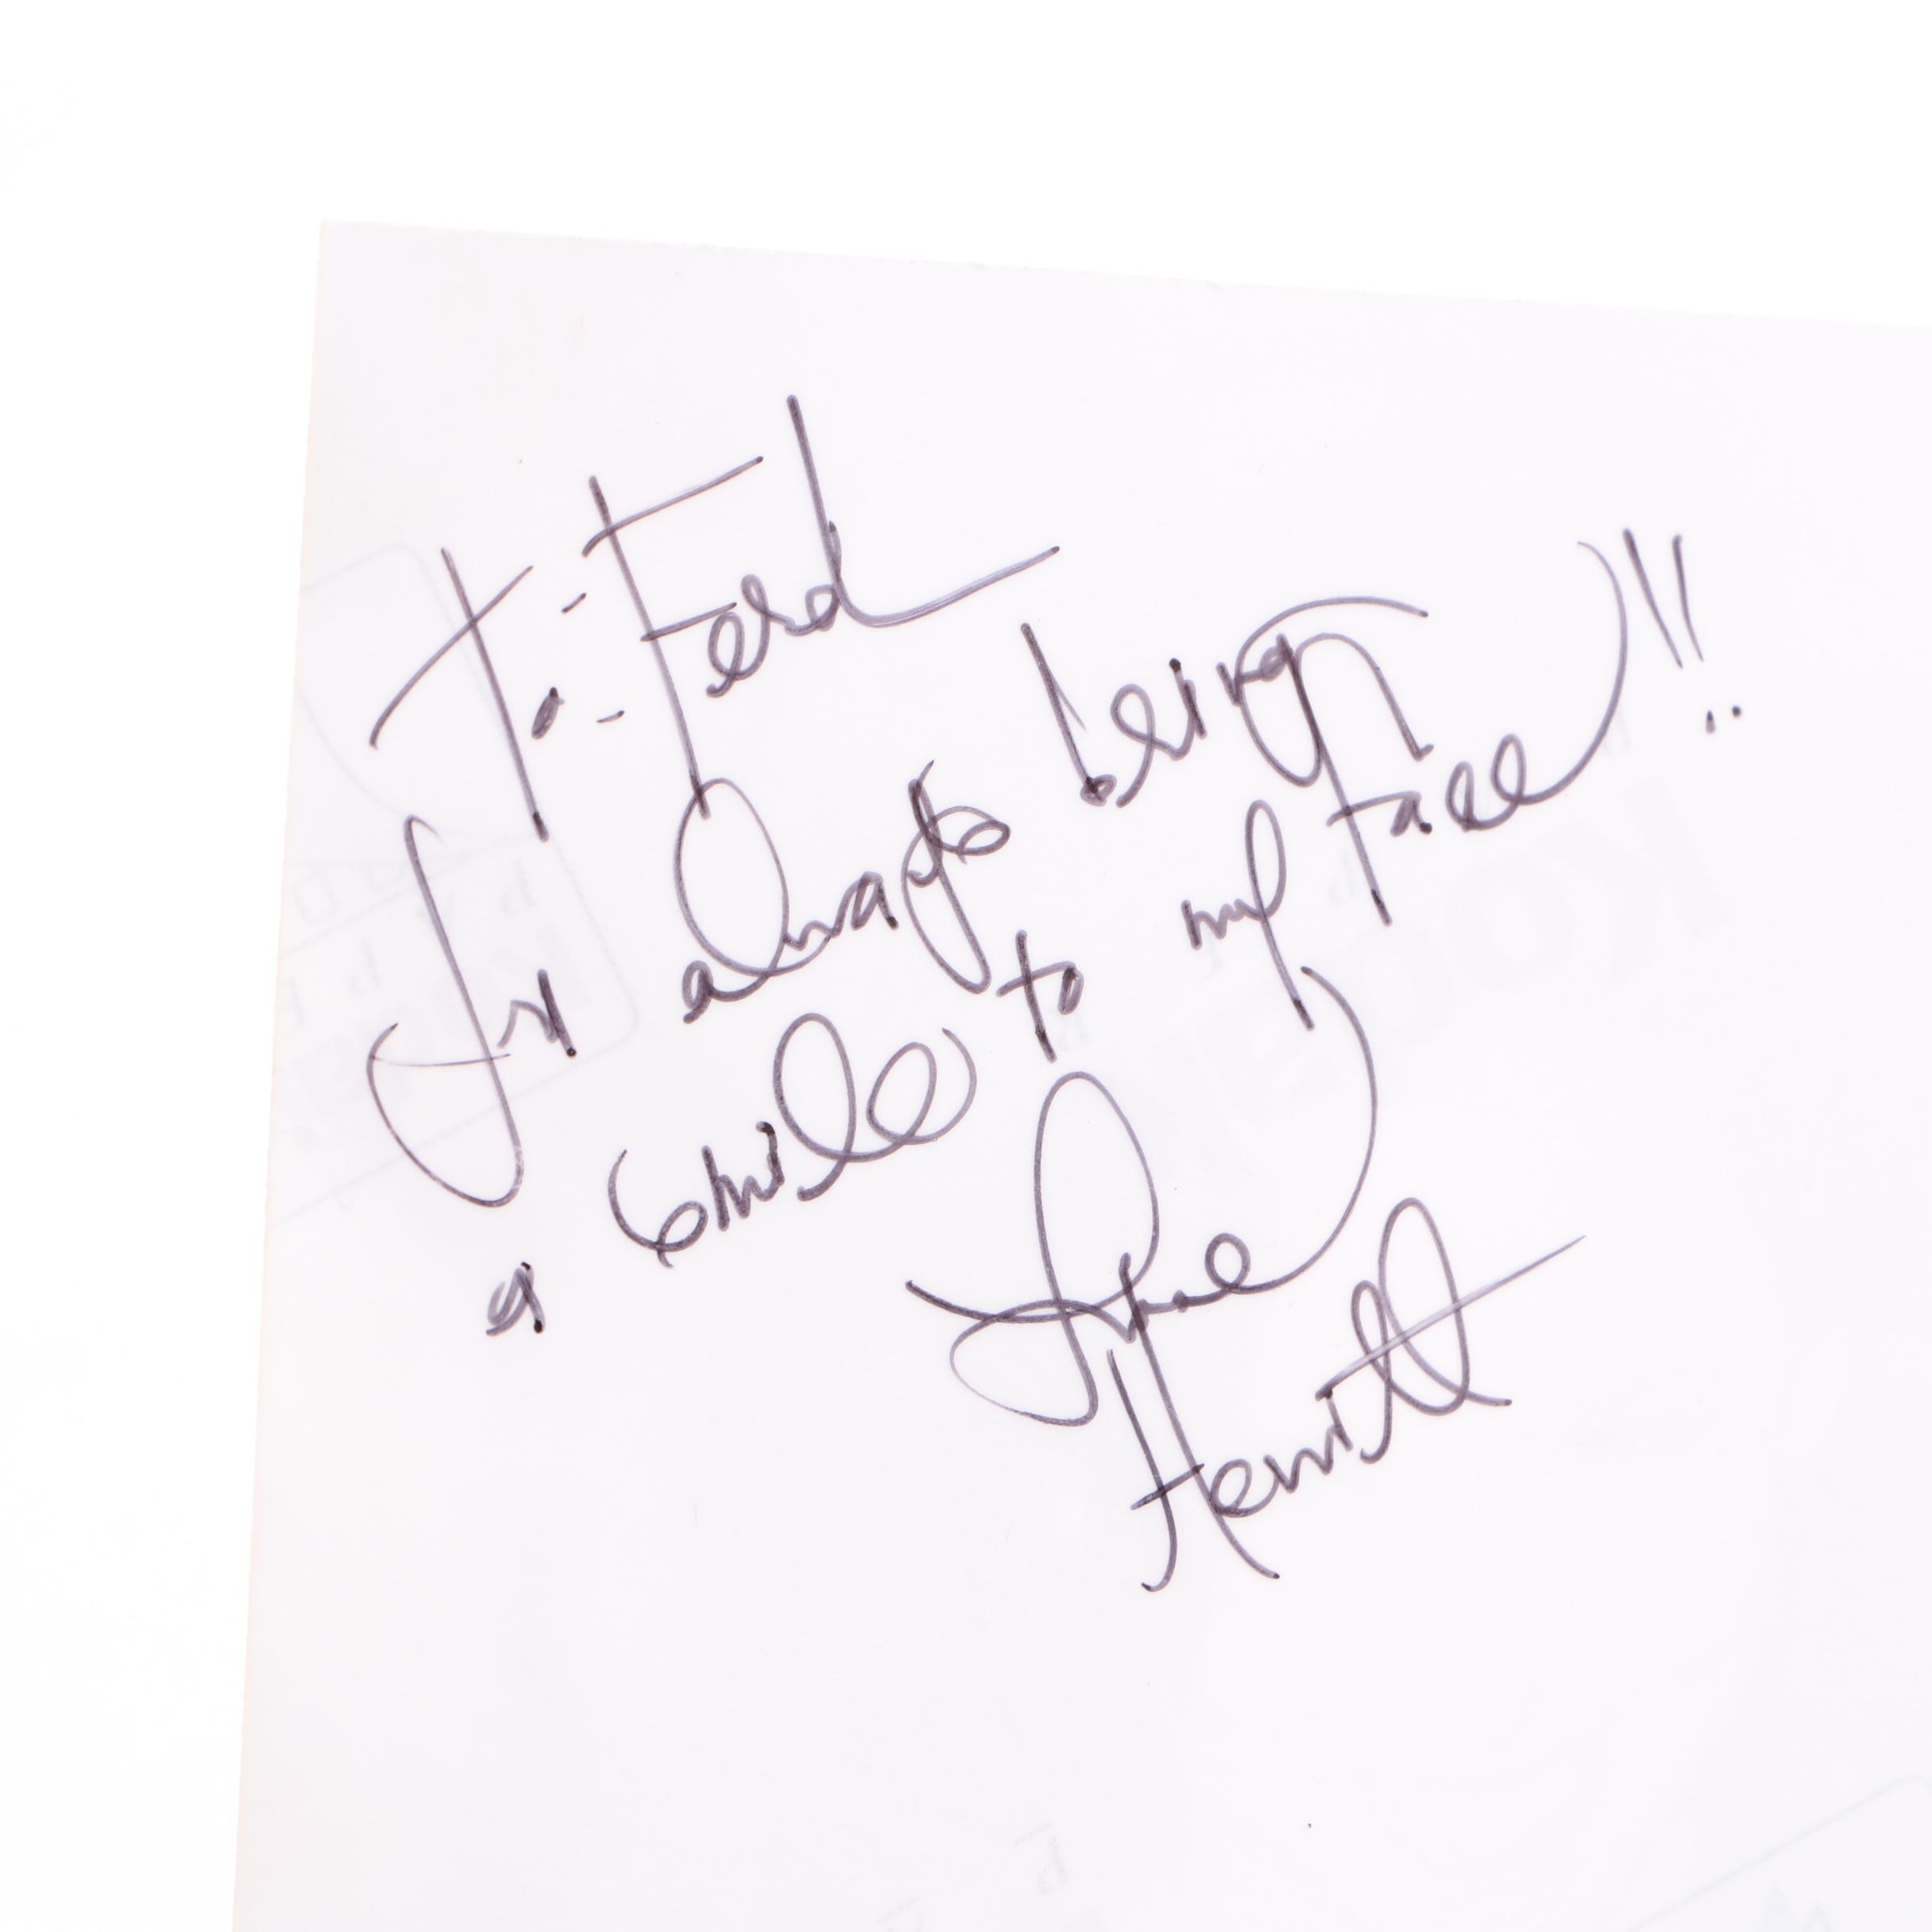 To: Ferd
For always being
a smile to my face!!
Hewitt